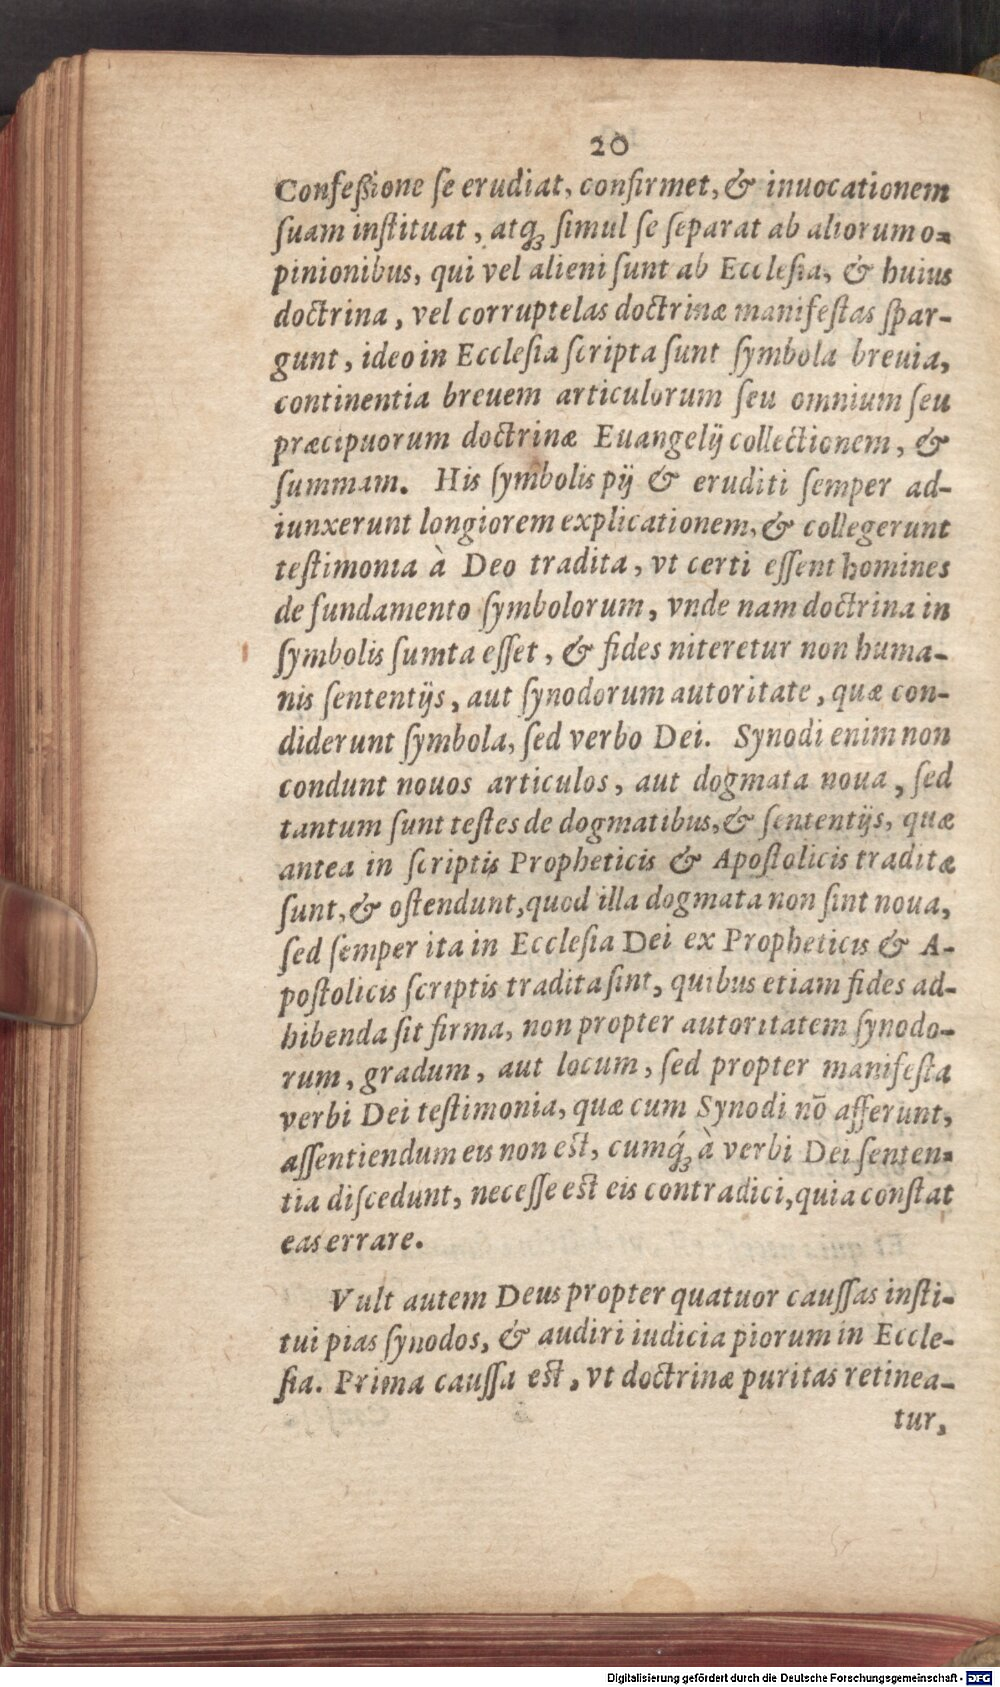 20
Confeßione ſe erudiat, confirmet, & inuocationem
ſuam inſtituat, atqꝫ ſimul ſe ſeparat ab aliorum o-
pinionibus, qui vel alieni ſunt ab Eccleſia, & huius
doctrina, vel corruptelas doctrinæ manifeſtas ſpar-
gunt, ideo in Eccleſia ſcripta ſunt ſymbola breuia,
continentia breuem articulorum ſeu omnium ſeu
præcipuorum doctrinæ Euangelij collectionem, &
ſummam. His ſymbolis pij & eruditi ſemper ad-
iunxerunt longiorem explicationem, & collegerunt
teſtimonia à Deo tradita, vt certi eſſent homines
de fundamento ſymbolorum, vnde nam doctrina in
ſymbolis ſumta eſſet, & fides niteretur non huma-
nis ſententijs, aut ſynodorum autoritate, quæ con-
diderunt ſymbola, ſed verbo Dei. Synodi enim non
condunt nouos articulos, aut dogmata noua, ſed
tantum ſunt teſtes de dogmatibus, & ſententijs, quæ
antea in ſcriptis Propheticis & Apoſtolicis traditæ
ſunt, & oſtendunt, quod illa dogmata non ſint noua,
ſed ſemper ita in Eccleſia Dei ex Propheticis & A-
poſtolicis ſcriptis tradita ſint, quibus etiam fides ad-
hibenda ſit firma, non propter autoritatem ſynodo-
rum, gradum, aut locum, ſed propter manifeſta
verbi Dei teſtimonia, quæ cum Synodi nō afferunt,
aſſentiendum eis non eſt, cumq́ꝫ à verbi Dei ſenten-
tia diſcedunt, neceſſe eſt eis contradici, quia conſtat
eas errare.
Vult autem Deus propter quatuor cauſſas inſti-
tui pias ſynodos, & audiri iudicia piorum in Eccle-
ſia. Prima cauſſa eſt, vt doctrinæ puritas retinea-
tur,
Digitalisierung gefördert durch die Deutsche Forschungsgemeinschaft - DFG